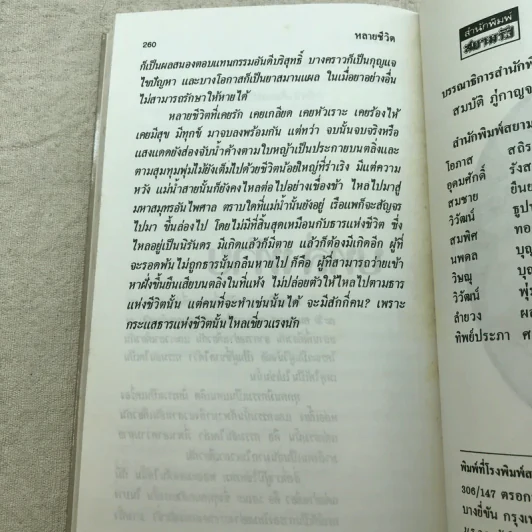 260
หลายชีวิต
ก็เป็นผลสนองตอบแทนกรรมอันดีบริสุทธิ์ บางคราวก็เป็นกุญแจ
ไขปัญหา และบางโอกาสก็เป็นยาสมานแผล ในเมื่อยาอย่างอื่น
ไม่สามารถรักษาให้หายได้
หลายชีวิตที่เคยรัก เคยเกลียด เคยหัวเราะ เคยร้องไห้
เคยมีสุข มีทุกข์ มาจบลงพร้อมกัน แต่ทว่า จบนั้นจบจริงหรือ
แสงแดดยังส่องจับน้ำค้างตามใบหญ้าเป็นประกายบนตลิ่งและ
ตามสุมทุมพุ่มไม้ยังเต็มไปด้วยชีวิตน้อยใหญ่ที่ร่าเริง มีแต่ความ
หวัง แม่น้ำสายนั้นก็ยังคงไหลต่อไปอย่างเชื่องช้า ไหลไปมาสู่
มหาสมุทรอันไพศาล ตราบใดที่แม่น้ำนั้นยังอยู่ เรือแพก็จะสัญจร
ไปมา ขึ้นล่องไป โดยไม่มีที่สิ้นสุดเหมือนกับธารแห่งชีวิต ซึ่ง
ไหลอยู่เป็นนิรันดร มีเกิดแล้วก็มีตาย แล้วก็ต้องมีเกิดอีก ผู้ที่
จะรอดพ้นไม่ถูกธารนั้นกลืนหายไป ก็คือ ผู้ที่สามารถว่ายเข้า
หาฝั่งขึ้นยืนเสียบนตลิ่งในที่แห้ง ไม่ปล่อยตัวให้ไหลไปตามธาร
แห่งชีวิตนั้น แต่คนที่จะทำเช่นนั้นได้ จะมีสักกี่คน? เพราะ
กระแสธารแห่งชีวิตนั้นไหลเชี่ยวแรงนัก
สำนักพิมพ์
สยามรัฐ
บรรณาธิการสำนักพิ
สมบัติ ภู่กาญจ
สำนักพิมพ์สยาม
โอภาส สถิร
อุดมศักดิ์ รังส
สมชาย ยืนย
วิวัฒน์ ธูปา
สมพิศ ทอ
นพดล บุญ
วิษณุ บุญ
วิวัฒน์ พุ่ม
ลำยวง ผล
ทิพย์ประภา ศ
พิมพ์ที่โรงพิมพ์ส
306/147 ตรอก
บางยี่ขัน กรุงเท